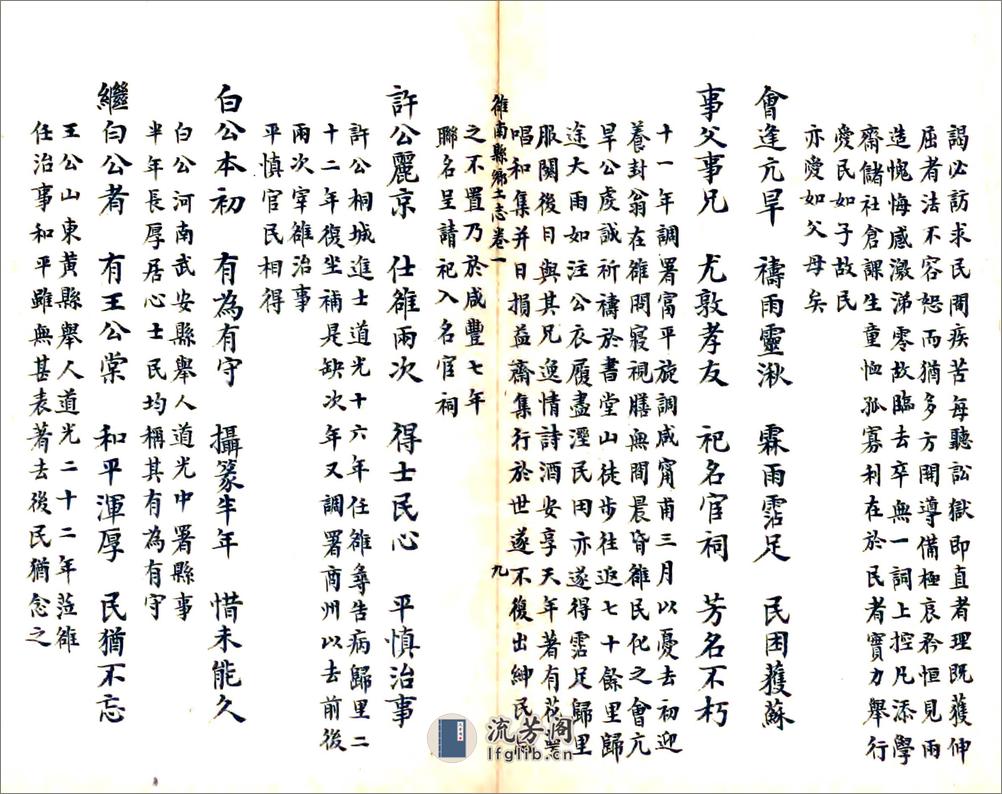 謁必訪求民間疾苦每聽訟獄即直者理既獲伸
屈者法不容恕而猶多方開導備極哀矜恒見兩
造愧悔感激涕零故臨去卒無一詞上控凡添學
齋儲社倉課生童恤孤寡利在於民者實力舉行
愛民如子故民
亦愛如父母矣
會逢亢旱　禱雨靈湫　霖雨霑足　民困獲蘇
事父事兄　尤敦孝友　祀名宦祠　芳名不朽
十一年調署富平旋調咸甯甫三月以憂去初迎
養封翁在雒間寢視膳無間晨昏雒民化之會亢
旱公虔誠祈禱於書堂山徒步往返七十餘里歸
途大雨如注公衣履盡溼民田亦遂得霑足歸里
服闋後日與其兄逸情詩酒安享天年著有花
唱和集并日損益齋集行於世遂不復出紳民
雒南縣鄉土志卷一　九
之不置乃於咸豐七年
聯名呈請祀入名宦祠
許公麗京　仕雒兩次　得士民心　平慎治事
許公桐城進士道光十六年任雒尋告病歸里二
十二年復坐補是缺次年又調署商州以去前後
兩次宰雒治事
平慎官民相得
白公本初　有為有守　攝篆半年　惜未能久
白公河南武安縣舉人道光中署縣事
半年長厚居心士民均稱其有為有守
繼白公者　有王公棠　和平渾厚　民猶不忘
王公山東黃縣舉人道光二十二年蒞雒
任治事和平雖無甚表著去後民猶念之
流芳閣
lfglib.cn